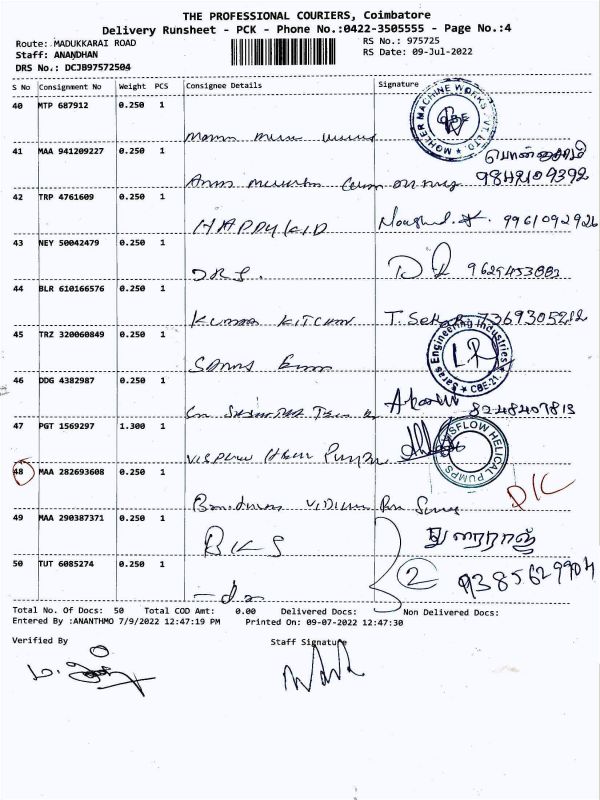 THE PROFESSIONAL COURIERS, Coimbatore
Delivery Runsheet - PCK - Phone No.:0422-3505555 - Page No.:4
Route: MADUKKARAI ROAD RS No.: 975725
Staff: ANANDHAN RS Date: 09-Jul-2022
DRS No.: DCJB97572504
S No Consignment No Weight PCS Consignee Details Signature
40 MTP 687912 0.250 1
MOHLER MACHINE WORKS PVT. LTD. CBE
41 MAA 941209227 0.250 1
9842109392
42 TRP 4761609 0.250 1
HAPPY KID 9961092926
43 NEY 50042479 0.250 1
9629453883
44 BLR 610166576 0.250 1
KUMAR KITCHON T. Sekar 7369305212
45 TRZ 320060849 0.250 1
Saras Engineering Industries CBE-21.
46 DDG 4382987 0.250 1
8248407813
47 PGT 1569297 1.300 1
VISFLOW HELICAL PUMPS
48 MAA 282693608 0.250 1
D/C
49 MAA 290387371 0.250 1
BKS துரைராஜ்
50 TUT 6085274 0.250 1
-do 2 9385629904
Total No. Of Docs: 50 Total COD Amt: 0.00 Delivered Docs: Non Delivered Docs:
Entered By :ANANTHMO 7/9/2022 12:47:19 PM Printed On: 09-07-2022 12:47:30
Verified By Staff Signature